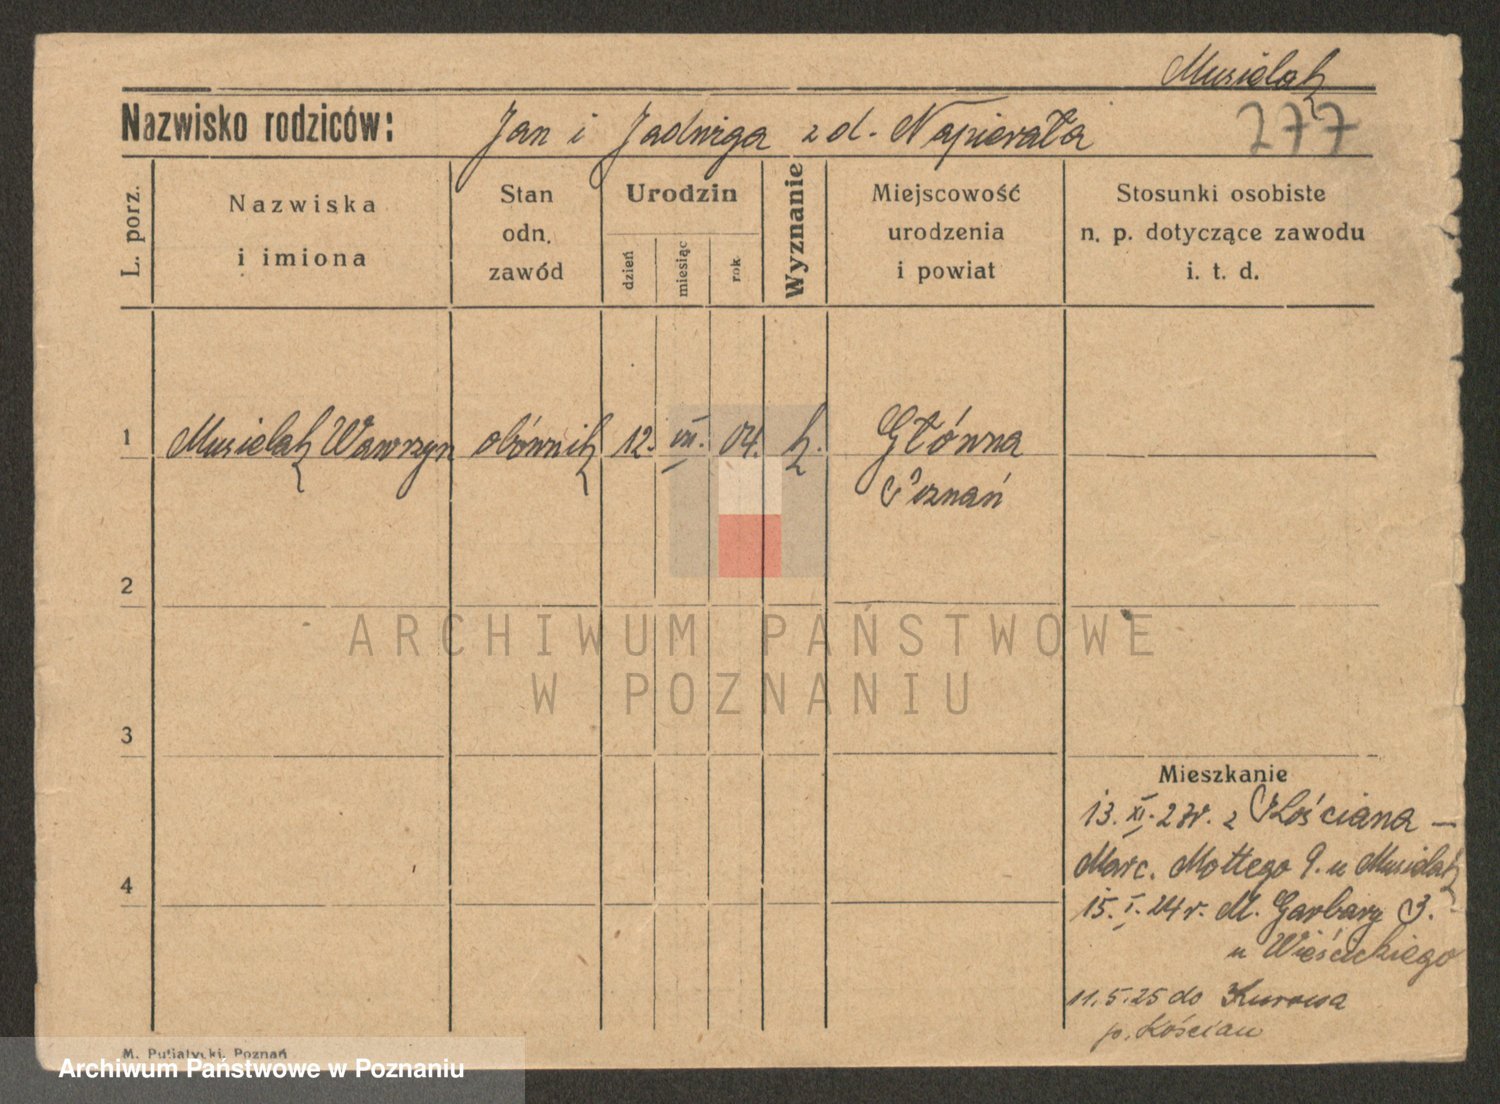 Musielak
Nazwisko rodziców: Jan i Jadwiga z d. Napierała
277
L. porz.
Nazwiska
i imiona
Stan
odn.
zawód
Urodzin
dzień
miesiąc
rok
Wyznanie
Miejscowość
urodzenia
i powiat
Stosunki osobiste
n. p. dotyczące zawodu
i. t. d.
1 Musielak Wawrzyn obównik 12. VII. 04. k. Główna
Poznań
2
ARCHIWUM PAŃSTWOWE
W POZNANIU
3
Mieszkanie
13. XI. 23r. z Kościana —
4
Marc. Mottego 9. u Musielak
15. I. 24 r. M. Garbary 3.
u Wieścickiego
11.5.25 do
p. Kościan
M. Putiatycki, Poznań
Archiwum Państwowe w Poznaniu